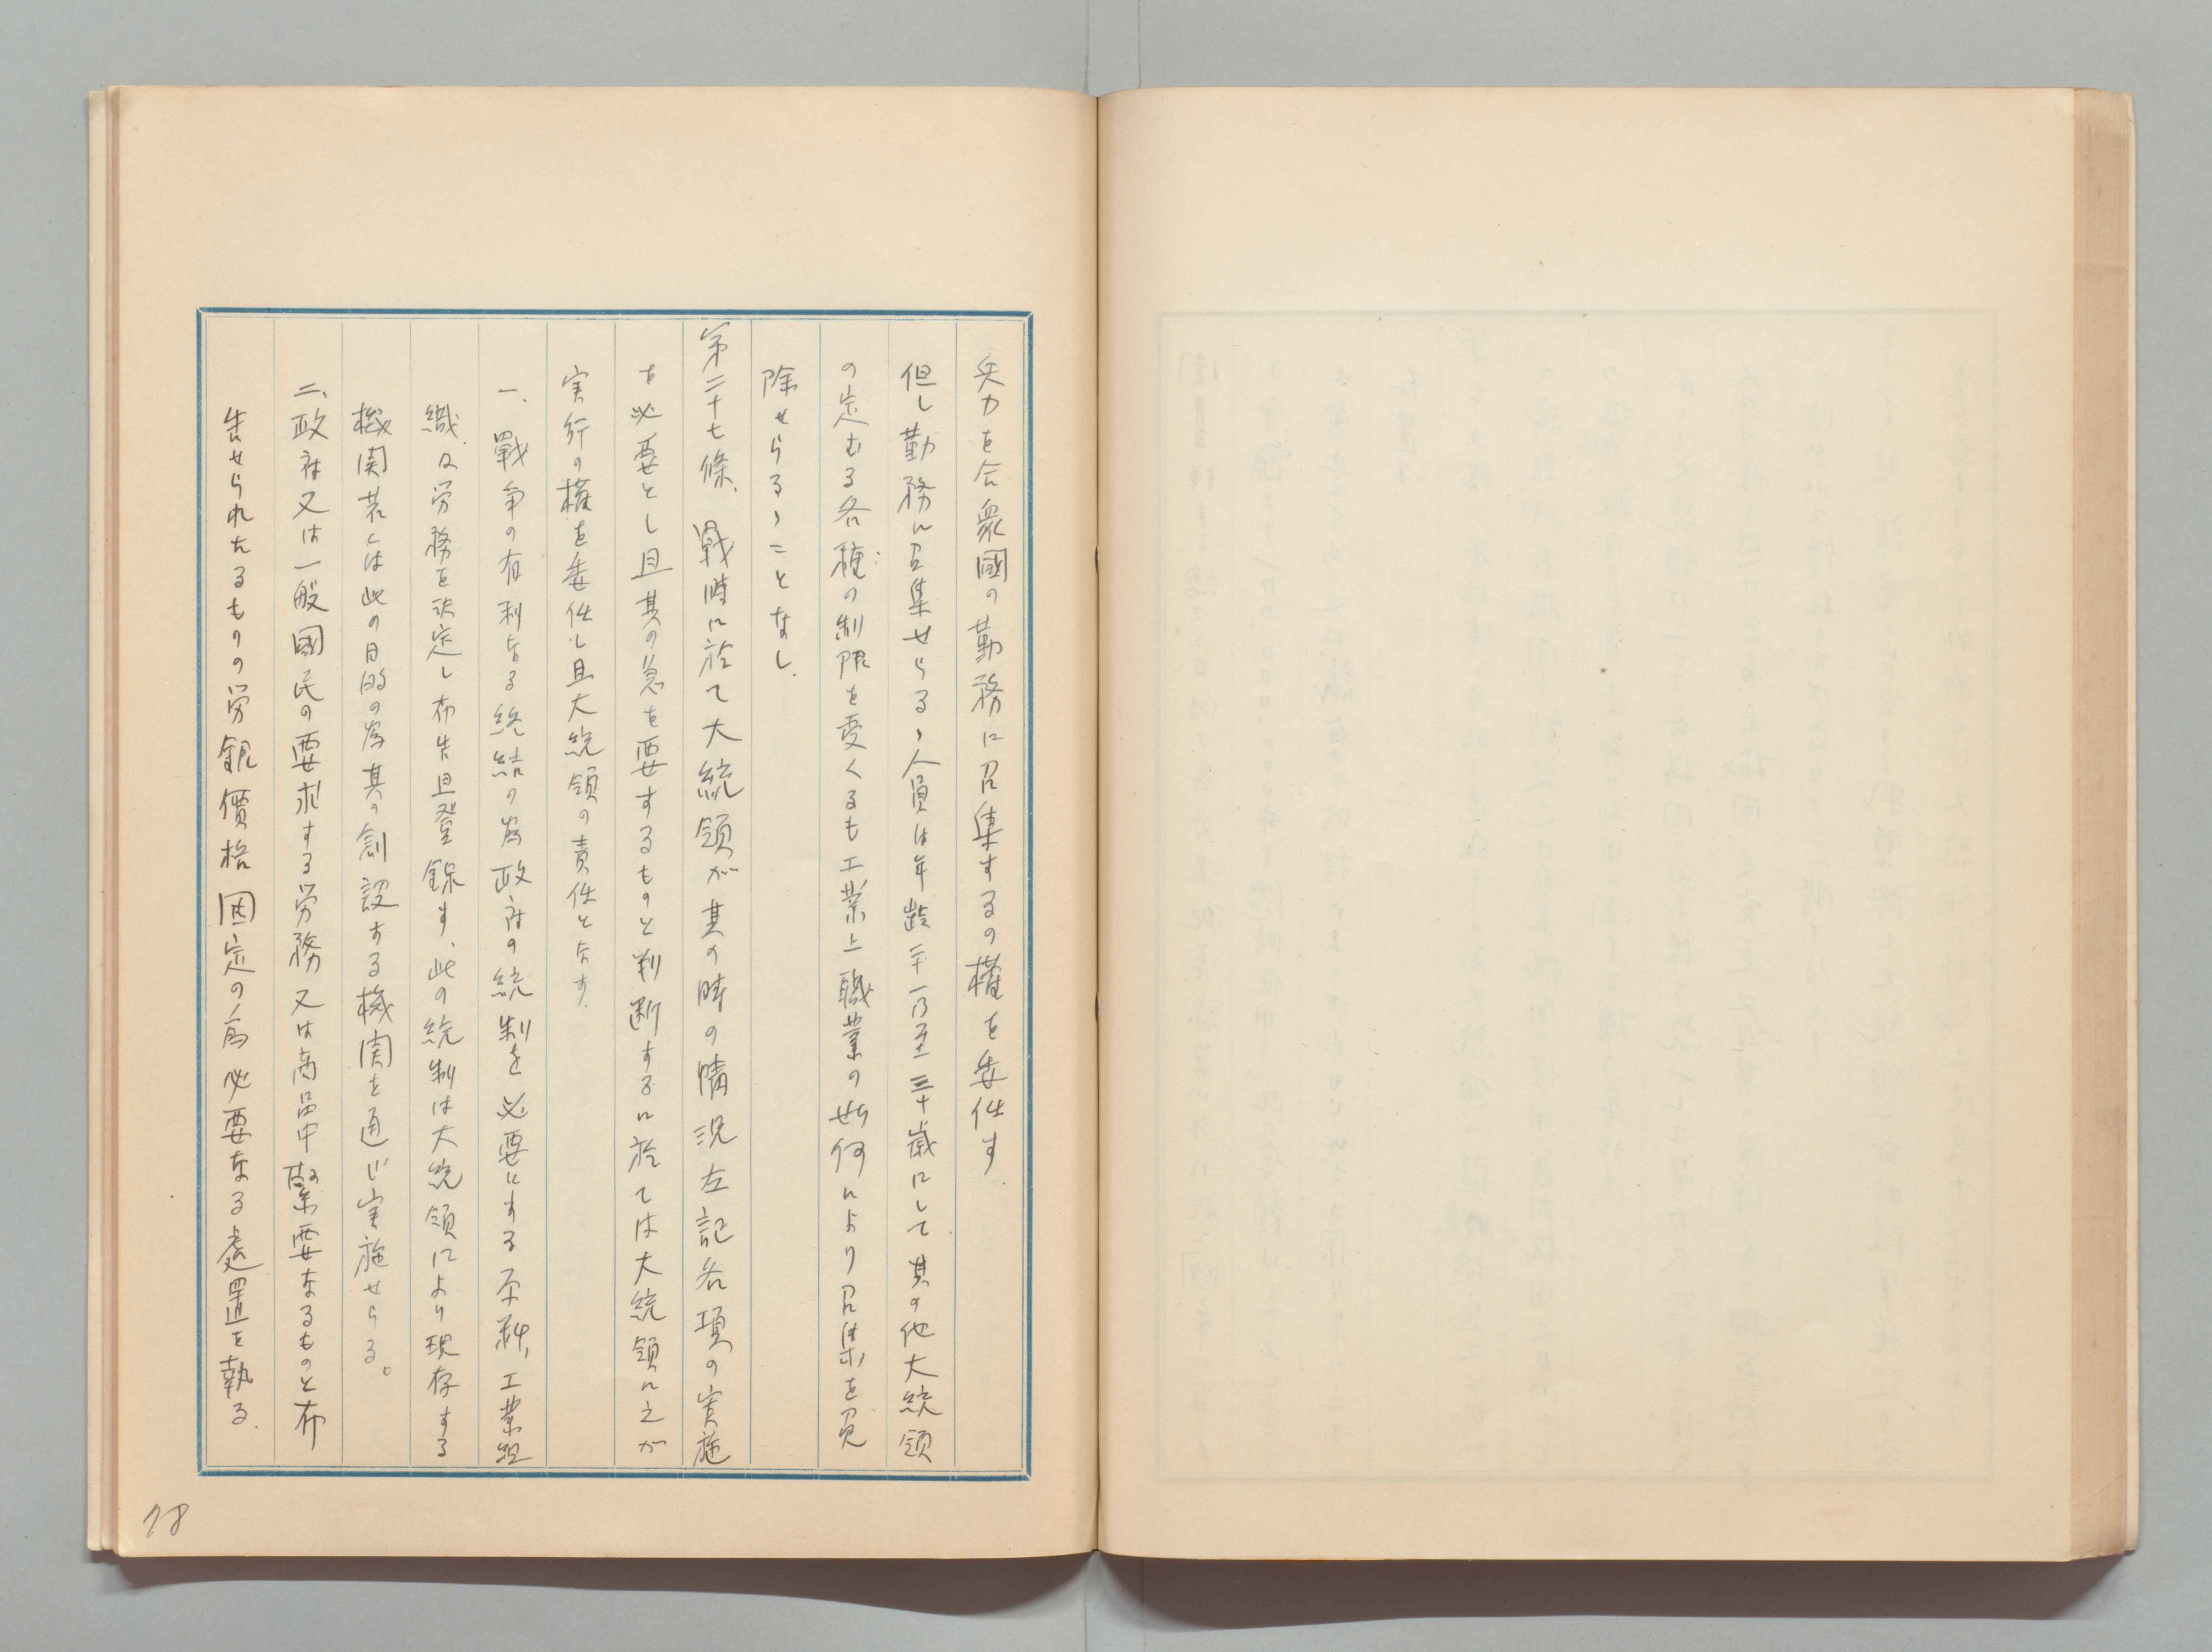 兵力を合衆國の勤務に召集するの權を委任す.
但し勤務に召集せらるゝ人員は年齡二十一乃至三十歳にして其の他大統領
の定むる各種の制限を受くるも工業上職業の如何により召集を免
除せらるゝことなし.
第二十七條、戰時に於て大統領が其の時の情況左記各項の実施
を必要とし且其の急を要するものと判断するに於ては大統領に之が
実行の權を委任し且大統領の責任とす.
一、戰争の有利なる終結の為政府の統制を必要とする原料、工業組
織及労務を決定し布告且登録す、此の統制は大統領により現存する
機関若くは此の目的の為其の創設する機関を通じ実施せらる。
二、政府又は一般國民の要求する労務又は商品中緊要なるものと布
告せられたるものの労銀價格固定の為必要なる處置を執る.
78